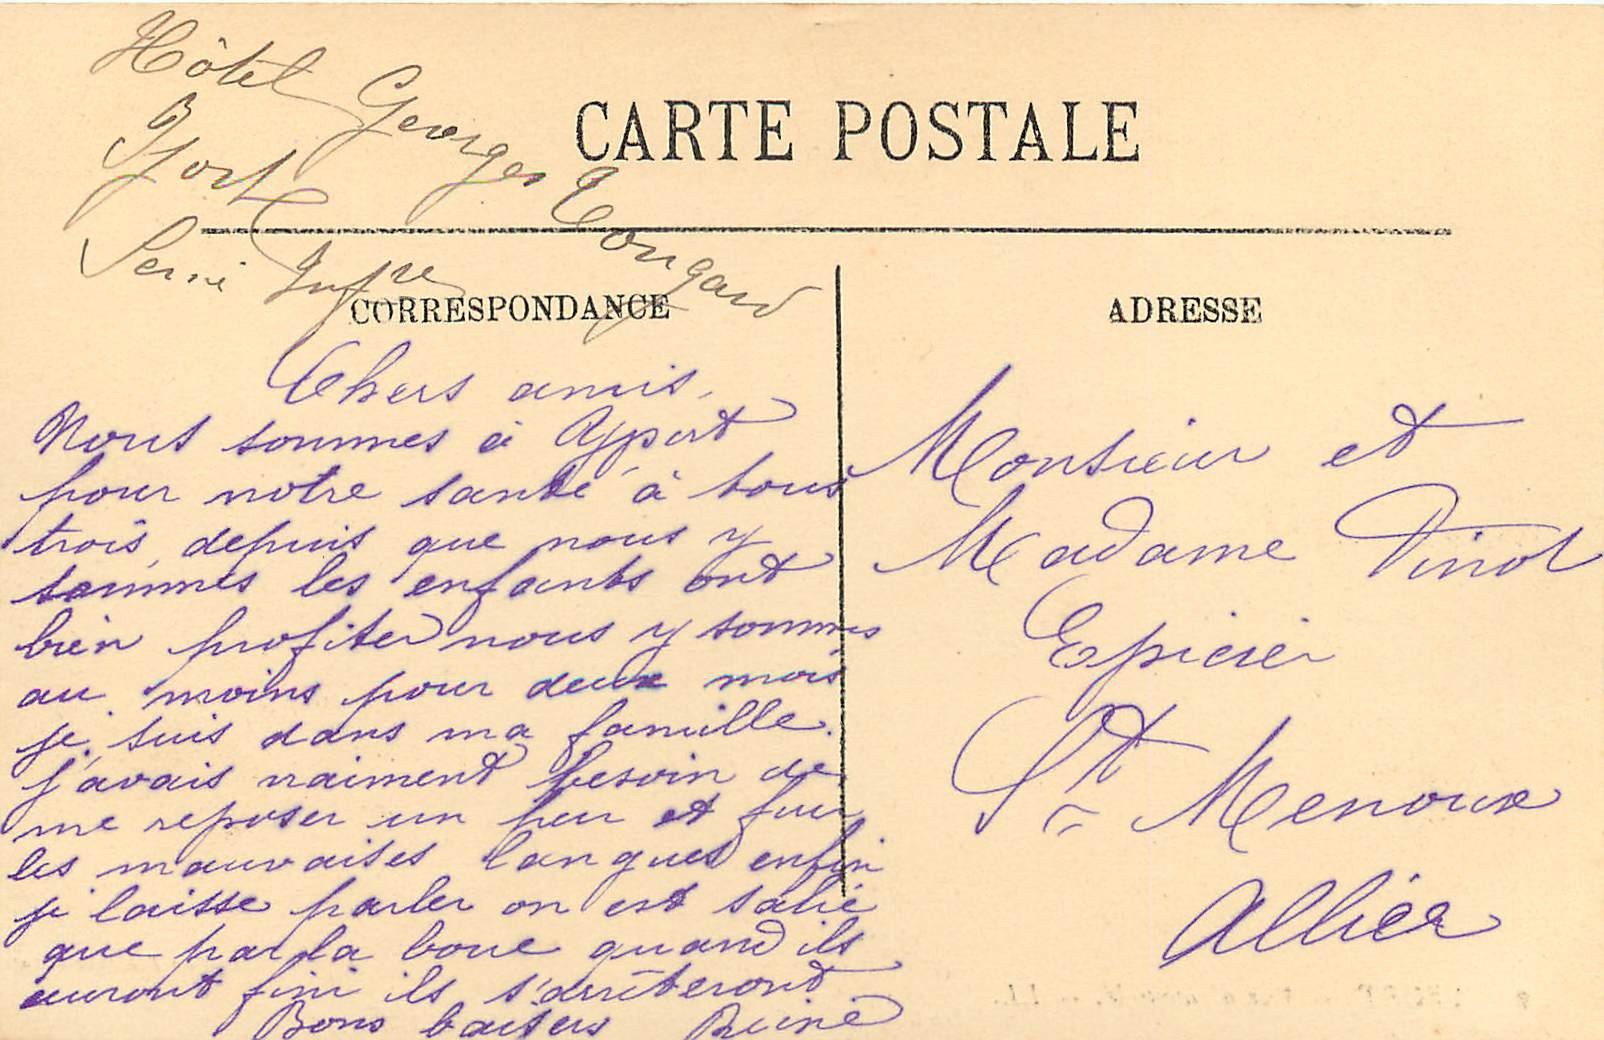 Hôtel Georges Tougard
Yport
Seine Infre
CARTE POSTALE
CORRESPONDANCE
ADRESSE
Chers amis.
Nous sommes à Yport
pour notre santé à tous
trois depuis que nous y
sommes les enfants ont
bien profiter nous y sommes
au moins pour deux mois
je suis dans ma famille.
j'avais vraiment besoin de
me reposer un peu et fuir
les mauvaises langues enfin
je laisse parler on est salie
que par la boue quand ils
auront fini ils s'arrêteront
Bons baisers Reine
Monsieur et
Madame Vinot
Epicier
St Menoux
Allier